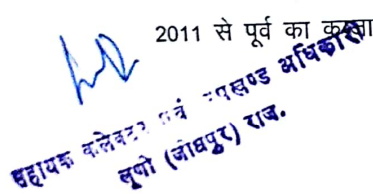 2011 से पूर्व का कब्जा
सहायक कलेक्टर एवं उपखण्ड अधिकारी
लूणी (जोधपुर) राज.